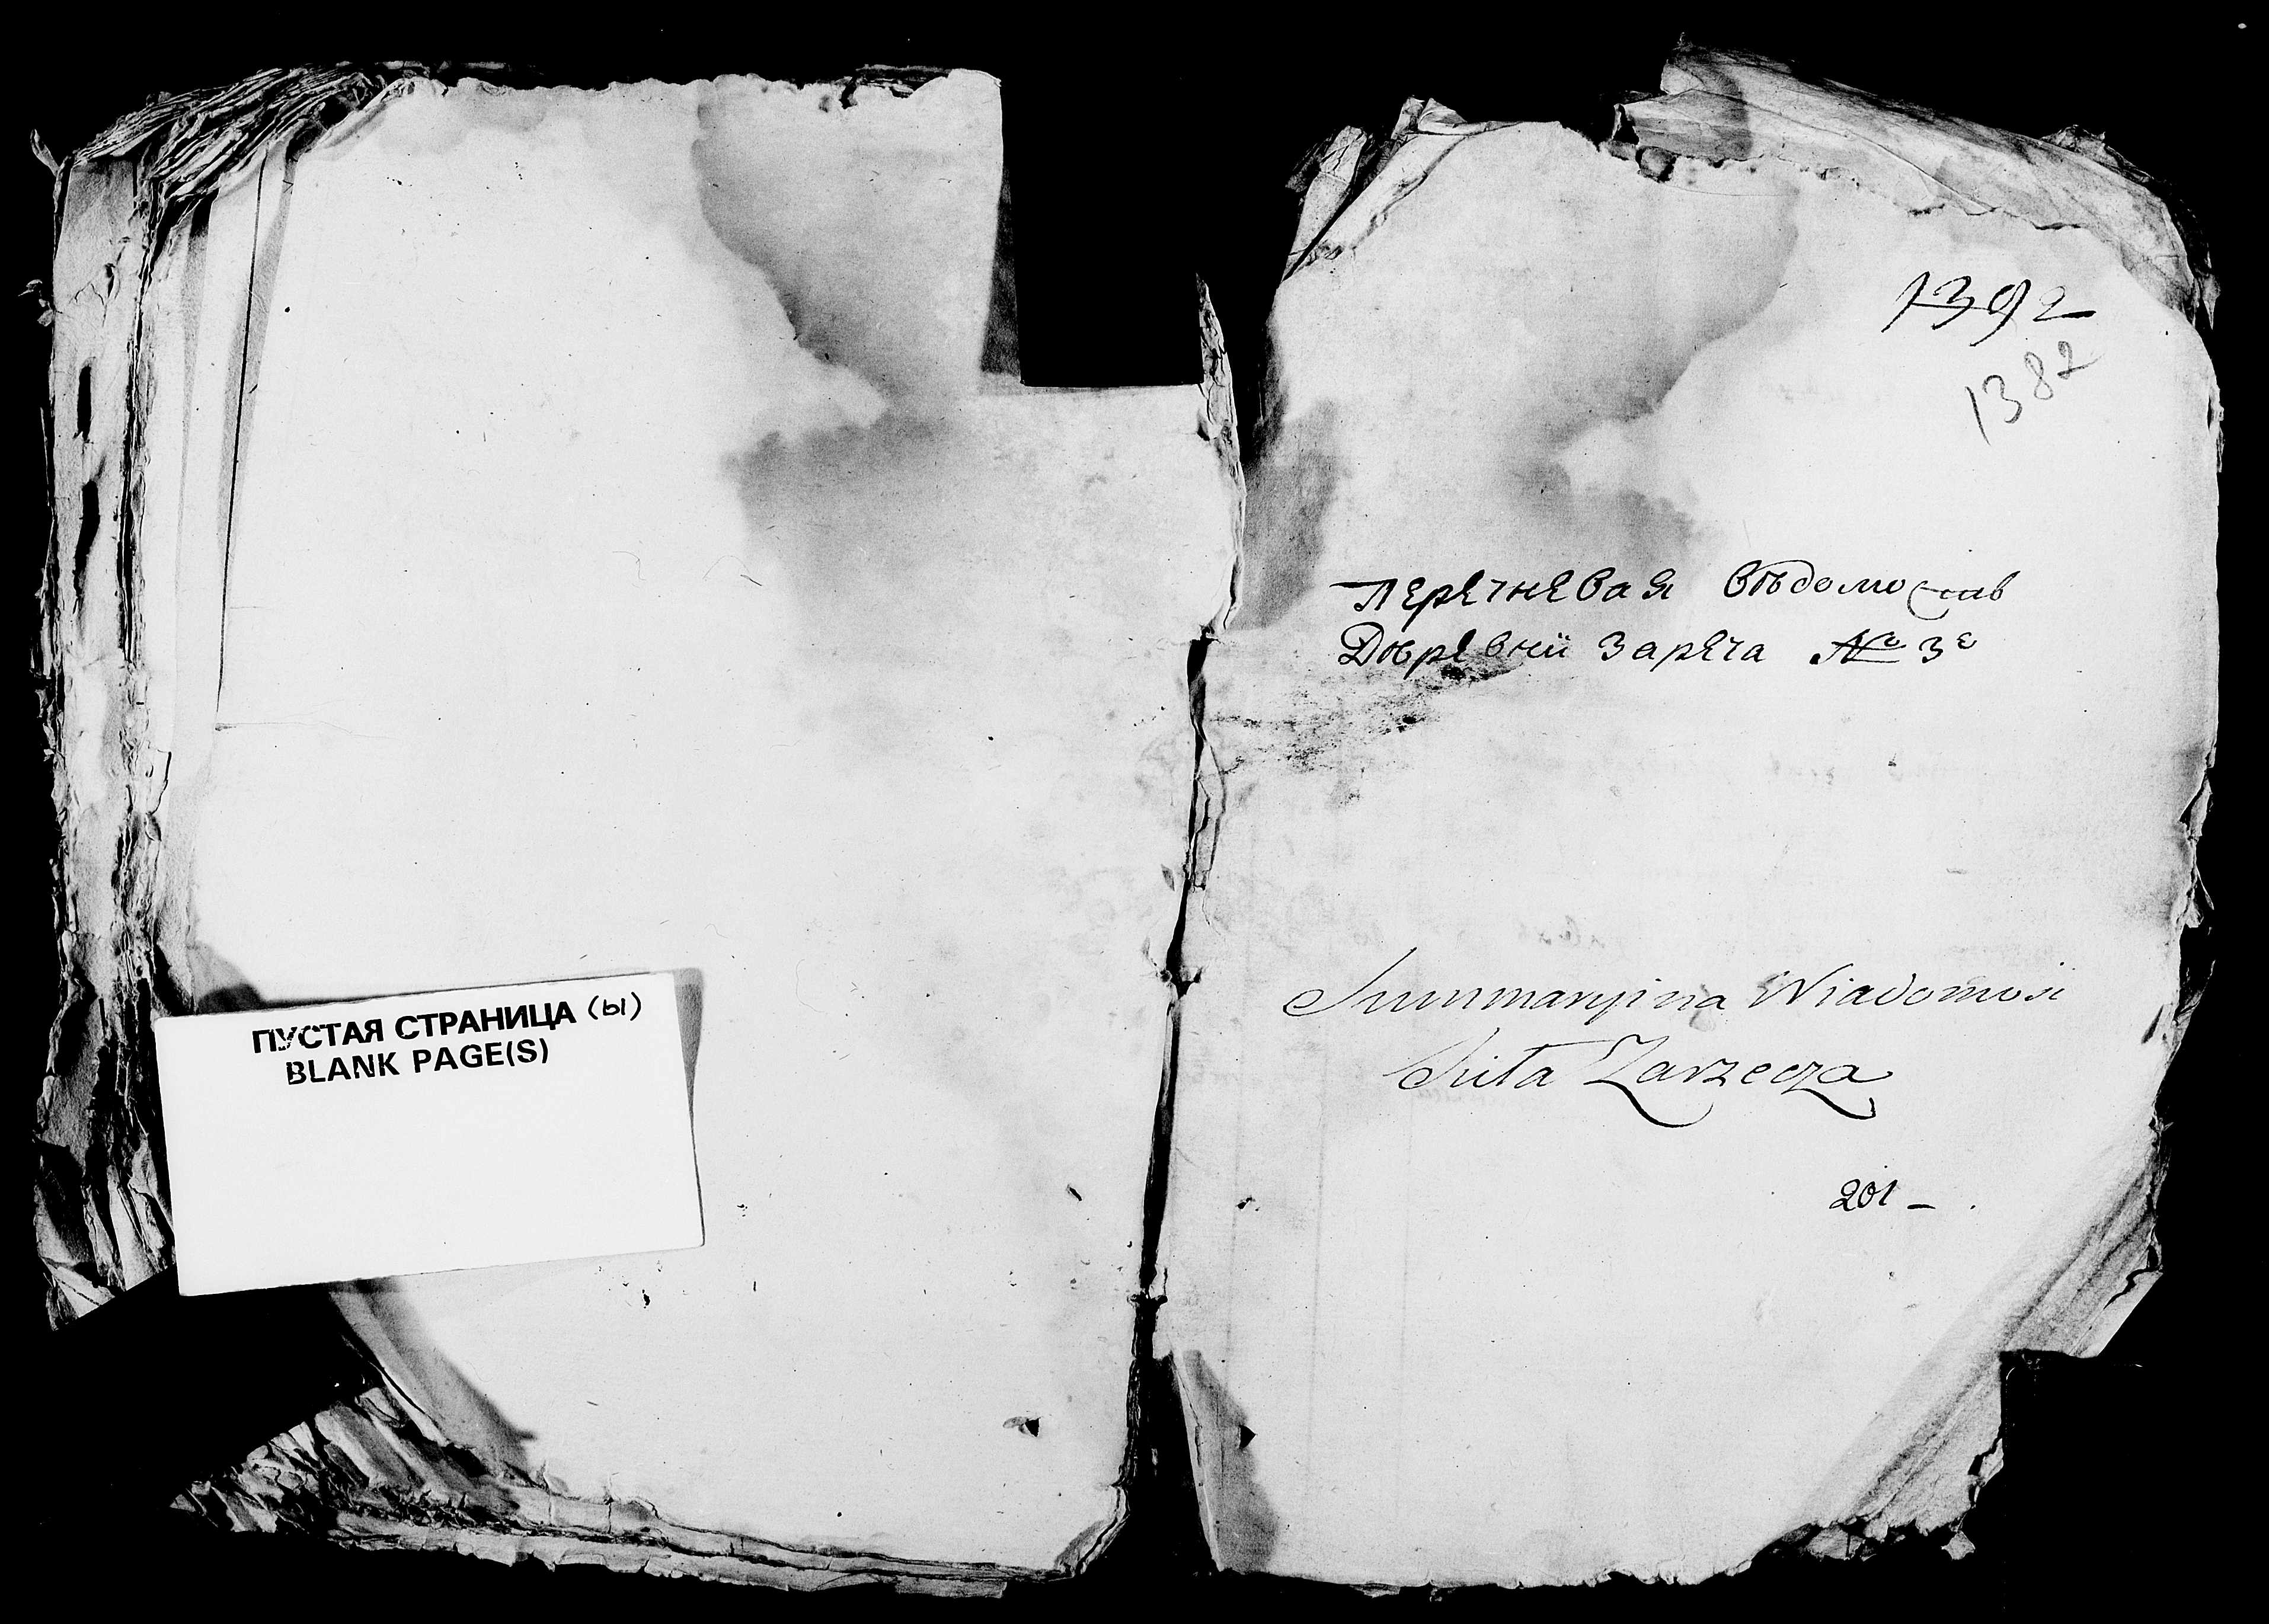 ПУСТАЯ СТРАНИЦА (Ы)
BLANK PAGE(S)
1392
1382
Перечневая вѣдомость
Дѣревни Зареча № 3е
Summaryina Wiadomosi
Zarzecza
201 –